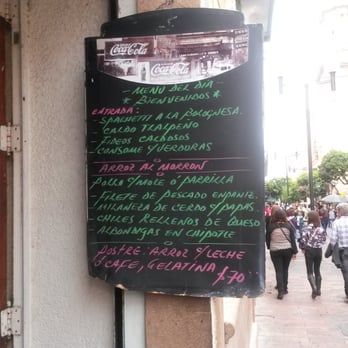 Coca-Cola
Coca-Cola
- MENU DEL DIA -
* BIENVENIDOS *
ENTRADA:
- SPAGHETTI A LA BOLOGNESA.
- CALDO TLALPEÑO
- FIDEOS CALDOSOS
- CONSOME S/VERDURAS
ARROZ AL MORRON
POLLO S/MOLE O PARRILLA
FILETE DE PESCADO EMPANIZ.
MILANEZA DE CERDO S/PAPAS
CHILES RELLENOS DE QUESO
ALBONDIGAS EN CHIPOTLE
POSTRE: ARROZ S/LECHE
O CAFE, GELATINA $70